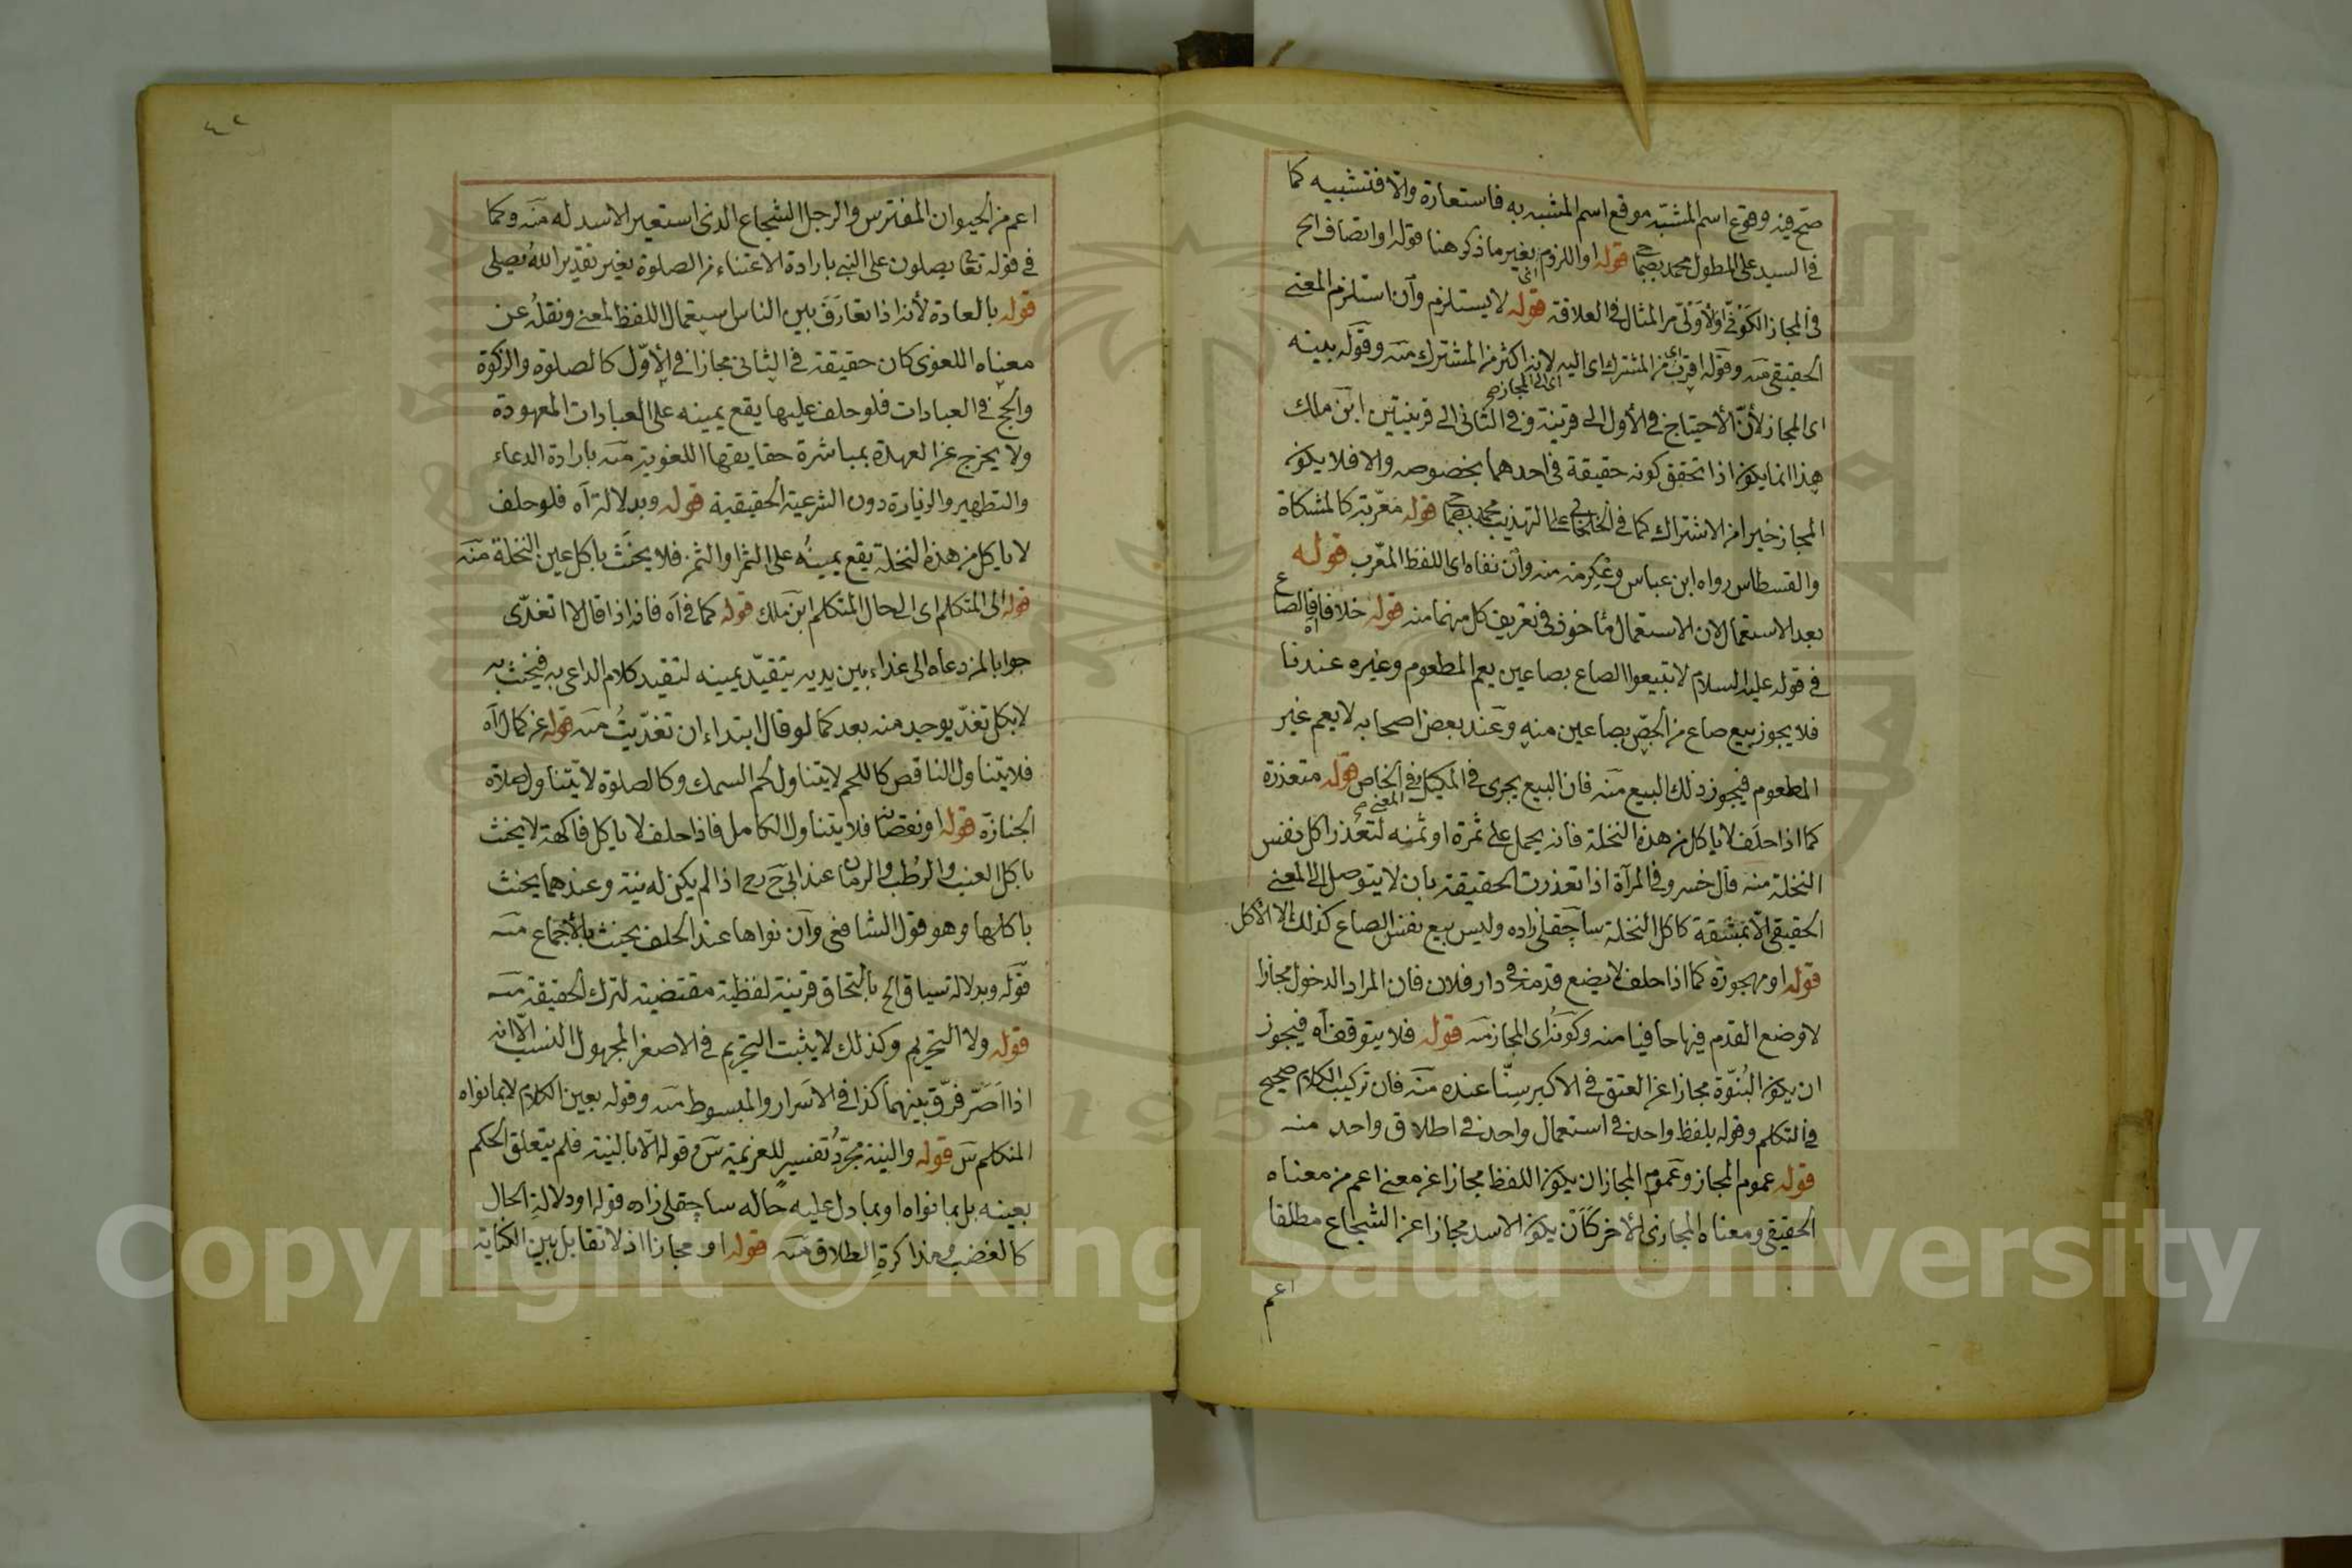 صح فيه وقوع اسم المشبه موقع اسم المشبه به فاستعارة والا فتشبيه كما
في السيد على المطول محمد قوله او اللزوم بغير ما ذكر هنا قوله او اتصاف الخ
في المجاز الكوني والأولي من المثال في العلاقة قوله لا يستلزم وان استلزم المعنى
الحقيقي منه وقوله اقرب من المشترك اى اليه لانه اكثر من المشترك منه وقوله بدينه
اى المجاز لأن الأحتياج في الأول الى قرينة وفي الثاني الى قرينتين ابن ملك
هذا انما يكون اذا تحقق كونه حقيقة في احدهما بخصوصه والا فلا يكون
المجاز خيرا من الاشتراك كما في الخلخالي على التهذيب قوله معربة كالمشكاة
والقسطاس رواه ابن عباس وعكرمة منه وان نفاه اى اللفظ المعرب قوله
بعد الاستعمال لان الاستعمال مأخوذ في تعريف كل منهما منه قوله خلافا فالصاع
في قوله عليه السلام لا تبيعوا الصاع بصاعين يعم المطعوم وغيره عندنا
فلا يجوز بيع صاع من الجص بصاعين منه وعند بعض اصحابه لا يعم غير
المطعوم فيجوز ذلك البيع منه فان البيع يجرى في المكيل وفي الخاص قوله متعذرة
كما اذا حلف لا يأكل من هذه النخلة فانه يحمل على ثمرة او ثمنه لتعذر اكل نفس
النخلة منه قال خسرو في المرآة اذا تعذرت الحقيقة بان لا يتوصل الى المعنى
الحقيقي الا بمشقة كاكل النخلة ساچقلي زاده وليس بيع نفس الصاع كذلك الا الأكل
قوله او مهجورة كما اذا حلف لا يضع قدمه في دار فلان فان المراد الدخول مجازا
لا وضع القدم فيها حافيا منه وكونه اى المجاز منه قوله فلا يتوقف اه فيجوز
ان يكون البنوة مجازا عن العتق في الاكبر سنا عنده منه فان تركيب الكلام صحيح
في التكلم وقوله بلفظ واحد في استعمال واحد في اطلاق واحد منه
قوله عموم المجاز وعموم المجاز ان يكون اللفظ مجازا عن معنى اعم من معناه
الحقيقي ومعناه المجازى الأخر كأن يكون الاسد مجازا عن الشجاع مطلقا
اعم
٤٢
اعم من الحيوان المفترس والرجل الشجاع الذى استعير الاسد له منه وكما
في قوله تعا يصلون على النبي بارادة الاعتناء من الصلوة بغير تقدير الله يصلى
قوله بالعادة لأنه اذا تعارف بين الناس استعمال اللفظ لمعنى ونقله عن
معناه اللغوى كان حقيقة في الثاني مجازا في الأول كالصلوة والزكوة
والحج في العبادات فلو حلف عليها يقع يمينه على العبادات المعهودة
ولا يخرج عن العهدة بمباشرة حقايقها اللغوية منه بارادة الدعاء
والتطهير والزيارة دون الشرعية الحقيقية قوله وبدلالة اه فلو حلف
لا يأكل من هذه النخلة يقع يمينه على الثمر او الثمن فلا يحنث باكل عين النخلة منه
قوله الى المتكلم اى الى حال المتكلم ابن ملك قوله كما في اه فانه اذا قال لا اتغدى
جوابا لمن دعاه الى غداء بين يديه يتقيد يمينه لتقيد كلام الداعى به فيحنث به
لا بكل تغد يوجد منه بعد كما لو قال ابتداء ان تغديت منه قوله عن كمال اه
فلا يتناول الناقص كاللحم لا يتناول لحم السمك وكالصلوة لا يتناول صلاة
الجنازة قوله او نقصان فلا يتناول الكامل فاذا حلف لا يأكل فاكهة لا يحنث
باكل العنب والرطب والرمان عند ابي ح رح اذا لم يكن له نية وعندهما يحنث
باكلها وهو قول الشافعى وان نواها عند الحلف يحنث بالأجماع منه
قوله وبدلالة سياق الخ بالتحاق قرينة لفظية مقتضية لترك الحقيقة منه
قوله ولا التحريم وكذلك لا يثبت التحريم في الاصغر المجهول النسب الا انه
اذا اصر فرق بينهما كذا في الاسرار والمبسوط منه وقوله بعين الكلام لا بما نواه
المتكلم س قوله والنية مجرد تفسير للعزيمة س وقوله الا بالنية فلم يتعلق الحكم
بعينه بل بما نواه او بما دل عليه حاله ساچقلي زاده قوله او دلالة الحال
كالغضب ومذاكرة الطلاق منه قوله او مجازا اذ لا تقابل بين الكناية
Copyright © King Saud University
1957